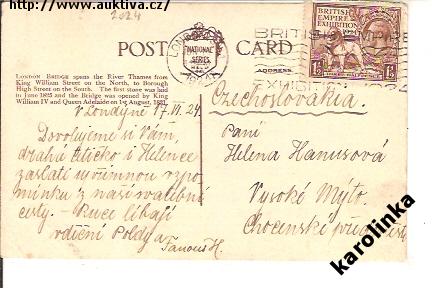 www.auktiva.cz
2024
POST CARD
NATIONAL
SERIES
BRITISH
EMPIRE
EXHIBITION
1924
ADDRESS
LONDON BRIDGE spans the River Thames from
King William Street on the North, to Borough
High Street on the South. The first stone was laid
in June 1825 and the Bridge was opened by King
William IV and Queen Adelaide on 1st August, 1831.
V Londýně 17.VI.24
Dovolujeme si Vám,
drahá tetičko i Helence
zaslati upřímnou vzpo
mínku z naší svatební
cesty. – Ruce líbají
vděční Poldy a
Fanouš H.
Czechoslovakia.
Paní
Helena Hanusová
Vysoké Mýto.
Choceňské předměstí
karolinka